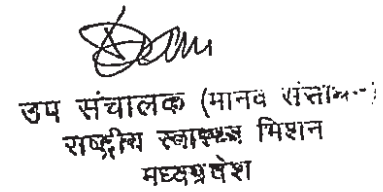 उप संचालक (मानव
राष्ट्रीय स्वास्थ्य मिशन
मध्यप्रदेश